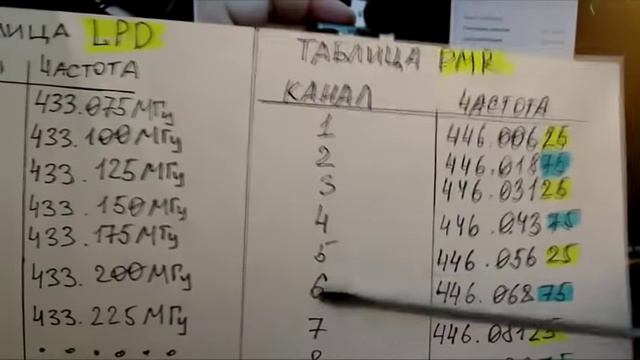 ЛИЦА LPD
ЧАСТОТА
433.075 МГц
433.100 МГц
433.125 МГц
433.150 МГц
433.175 МГц
433.200 МГц
433.225 МГц
. . . . . .
ТАБЛИЦА PMR
КАНАЛ ЧАСТОТА
1 446.00625
2 446.01875
3 446.03125
4 446.04375
5 446.05625
6 446.06875
7 446.08125